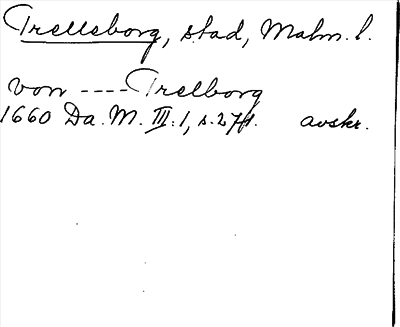 Trelleborg, stad, Malm. l.
von ---- Trelborg
1660 Da. M. III: 1, s. 27f. avskr.